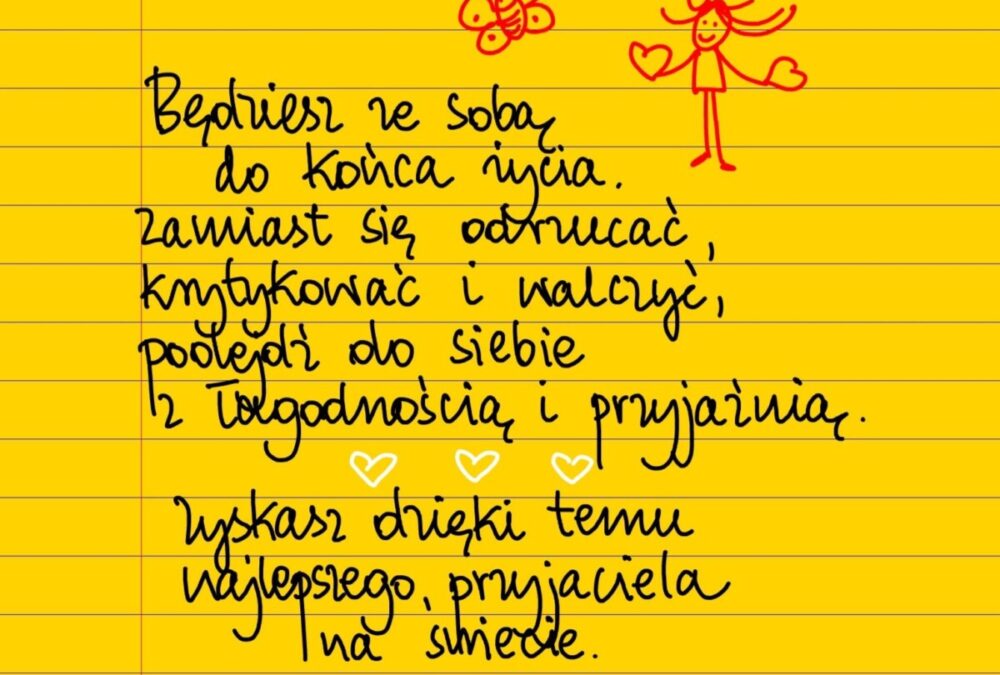 Będziesz ze sobą
do końca życia.
Zamiast się odrzucać,
krytykować i walczyć,
podejdź do siebie
z łagodnością i przyjaźnią.
Zyskasz dzięki temu
najlepszego przyjaciela
na świecie.